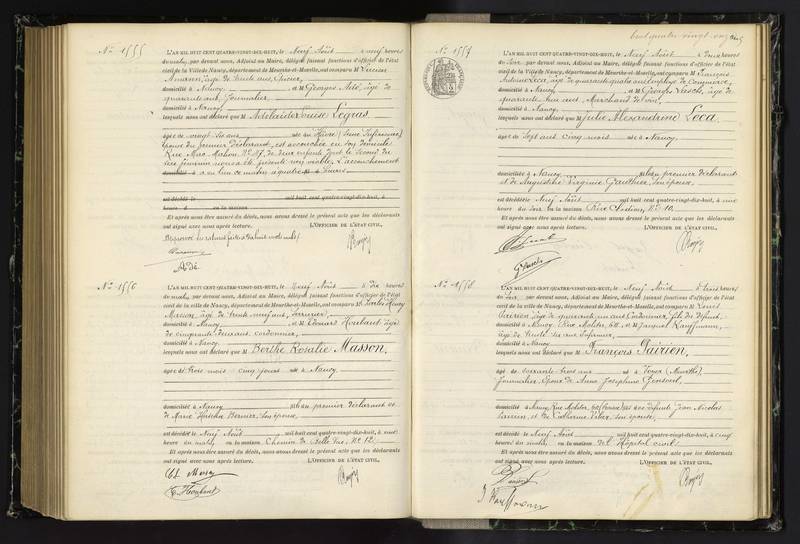 N° 1555
L'AN MIL HUIT CENT QUATRE-VINGT-DIX-HUIT, le Neuf Août à neuf heures
du matin, par devant nous, Adjoint au Maire, délégué faisant fonctions d'officier de l'état
civil de la Ville de Nancy, département de Meurthe-et-Moselle, ont comparu M
âgé de trente ans,
domicilié à Nancy et M Georges Adé, âgé de
quarante ans, Journalier,
domicilié à Nancy,
lesquels nous ont déclaré que M Adélaïde Louise Legras
âgée de vingt six ans née au Hâvre (Seine Inférieure)
épouse du premier déclarant, est accouchée en son domicile
Rue Mac-Mahon N° 47, de deux enfants dont le second du
sexe féminin nous a été présenté non viable. L'accouchement
domicilié à a eu lieu ce matin à quatre heures
est décédé le mil huit cent quatre-vingt-dix-huit, à
heure d en la maison
Et après nous être assuré du décès, nous avons dressé le présent acte que les déclarants
ont signé avec nous après lecture. L'OFFICIER DE L'ÉTAT CIVIL,
Adé
N° 1556
L'AN MIL HUIT CENT QUATRE-VINGT-DIX-HUIT, le Neuf Août à dix heures
du matin, par devant nous, Adjoint au Maire, délégué faisant fonctions d'officier de l'état
civil de la ville de Nancy, département de Meurthe-et-Moselle, ont comparu M Charles Henry
Masson, âgé de trente neuf ans,
domicilié à Nancy et M Edouard Houbaut, âgé
de cinquante deux ans, cordonnier,
domicilié à Nancy
lesquels nous ont déclaré que M Berthe Rosalie Masson,
âgée de trois mois cinq jours née à Nancy
domiciliée à Nancy fille du premier déclarant et
de Marie Bernier, son épouse
est décédée le Neuf Août mil huit cent quatre-vingt-dix-huit, à une
heure du matin en la maison Chemin de Belle Vue, N° 12
Et après nous être assuré du décès, nous avons dressé le présent acte que les déclarants
ont signé avec nous après lecture. L'OFFICIER DE L'ÉTAT CIVIL,
E. Houbaut
Cent quatre-vingt onze
N° 1557
L'AN MIL HUIT CENT QUATRE-VINGT-DIX-HUIT, le Neuf Août à deux heures
du soir, par devant nous, Adjoint au Maire, délégué faisant fonctions d'officier de l'état
civil de la Ville de Nancy, département de Meurthe-et-Moselle, ont comparu M François
Antoine Leca, âgé de quarante quatre ans, employé de Commerce,
domicilié à Nancy et M Georges âgé de
quarante huit ans, Marchand de vin,
domicilié à Nancy,
lesquels nous ont déclaré que M Julie Alexandrine Leca
âgée de Sept ans cinq mois née à Nancy
domiciliée à Nancy fille du premier déclarant
et de Augustine Virginie Gauthier, son épouse
est décédée le Neuf Août mil huit cent quatre-vingt-dix-huit, à une
heure du soir en la maison Rue N° 10
Et après nous être assuré du décès, nous avons dressé le présent acte que les déclarants
ont signé avec nous après lecture. L'OFFICIER DE L'ÉTAT CIVIL,
N° 1558
L'AN MIL HUIT CENT QUATRE-VINGT-DIX-HUIT, le Neuf Août à trois heures
du soir, par devant nous, Adjoint au Maire, délégué faisant fonctions d'officier de l'état
civil de la ville de Nancy, département de Meurthe-et-Moselle, ont comparu M Louis
Pairien, âgé de quarante un ans, Cordonnier, fils du défunt
domicilié à Nancy, Rue Molitor, 68 et M Jacques Kauffmann,
âgé de trente six ans, Infirmier,
domicilié à Nancy
lesquels nous ont déclaré que M François Pairien,
âgé de soixante trois ans né à Toyer (Meurthe)
Journalier, époux de Anne Joséphine
domicilié à Nancy, Rue Molitor, fils des défunts Jean Nicolas
Pairien, et de Catherine son épouse
est décédé le Neuf Août mil huit cent quatre-vingt-dix-huit, à cinq
heures du matin en la maison de l'Hôpital civil
Et après nous être assuré du décès, nous avons dressé le présent acte que les déclarants
ont signé avec nous après lecture. L'OFFICIER DE L'ÉTAT CIVIL,
J Kauffmann